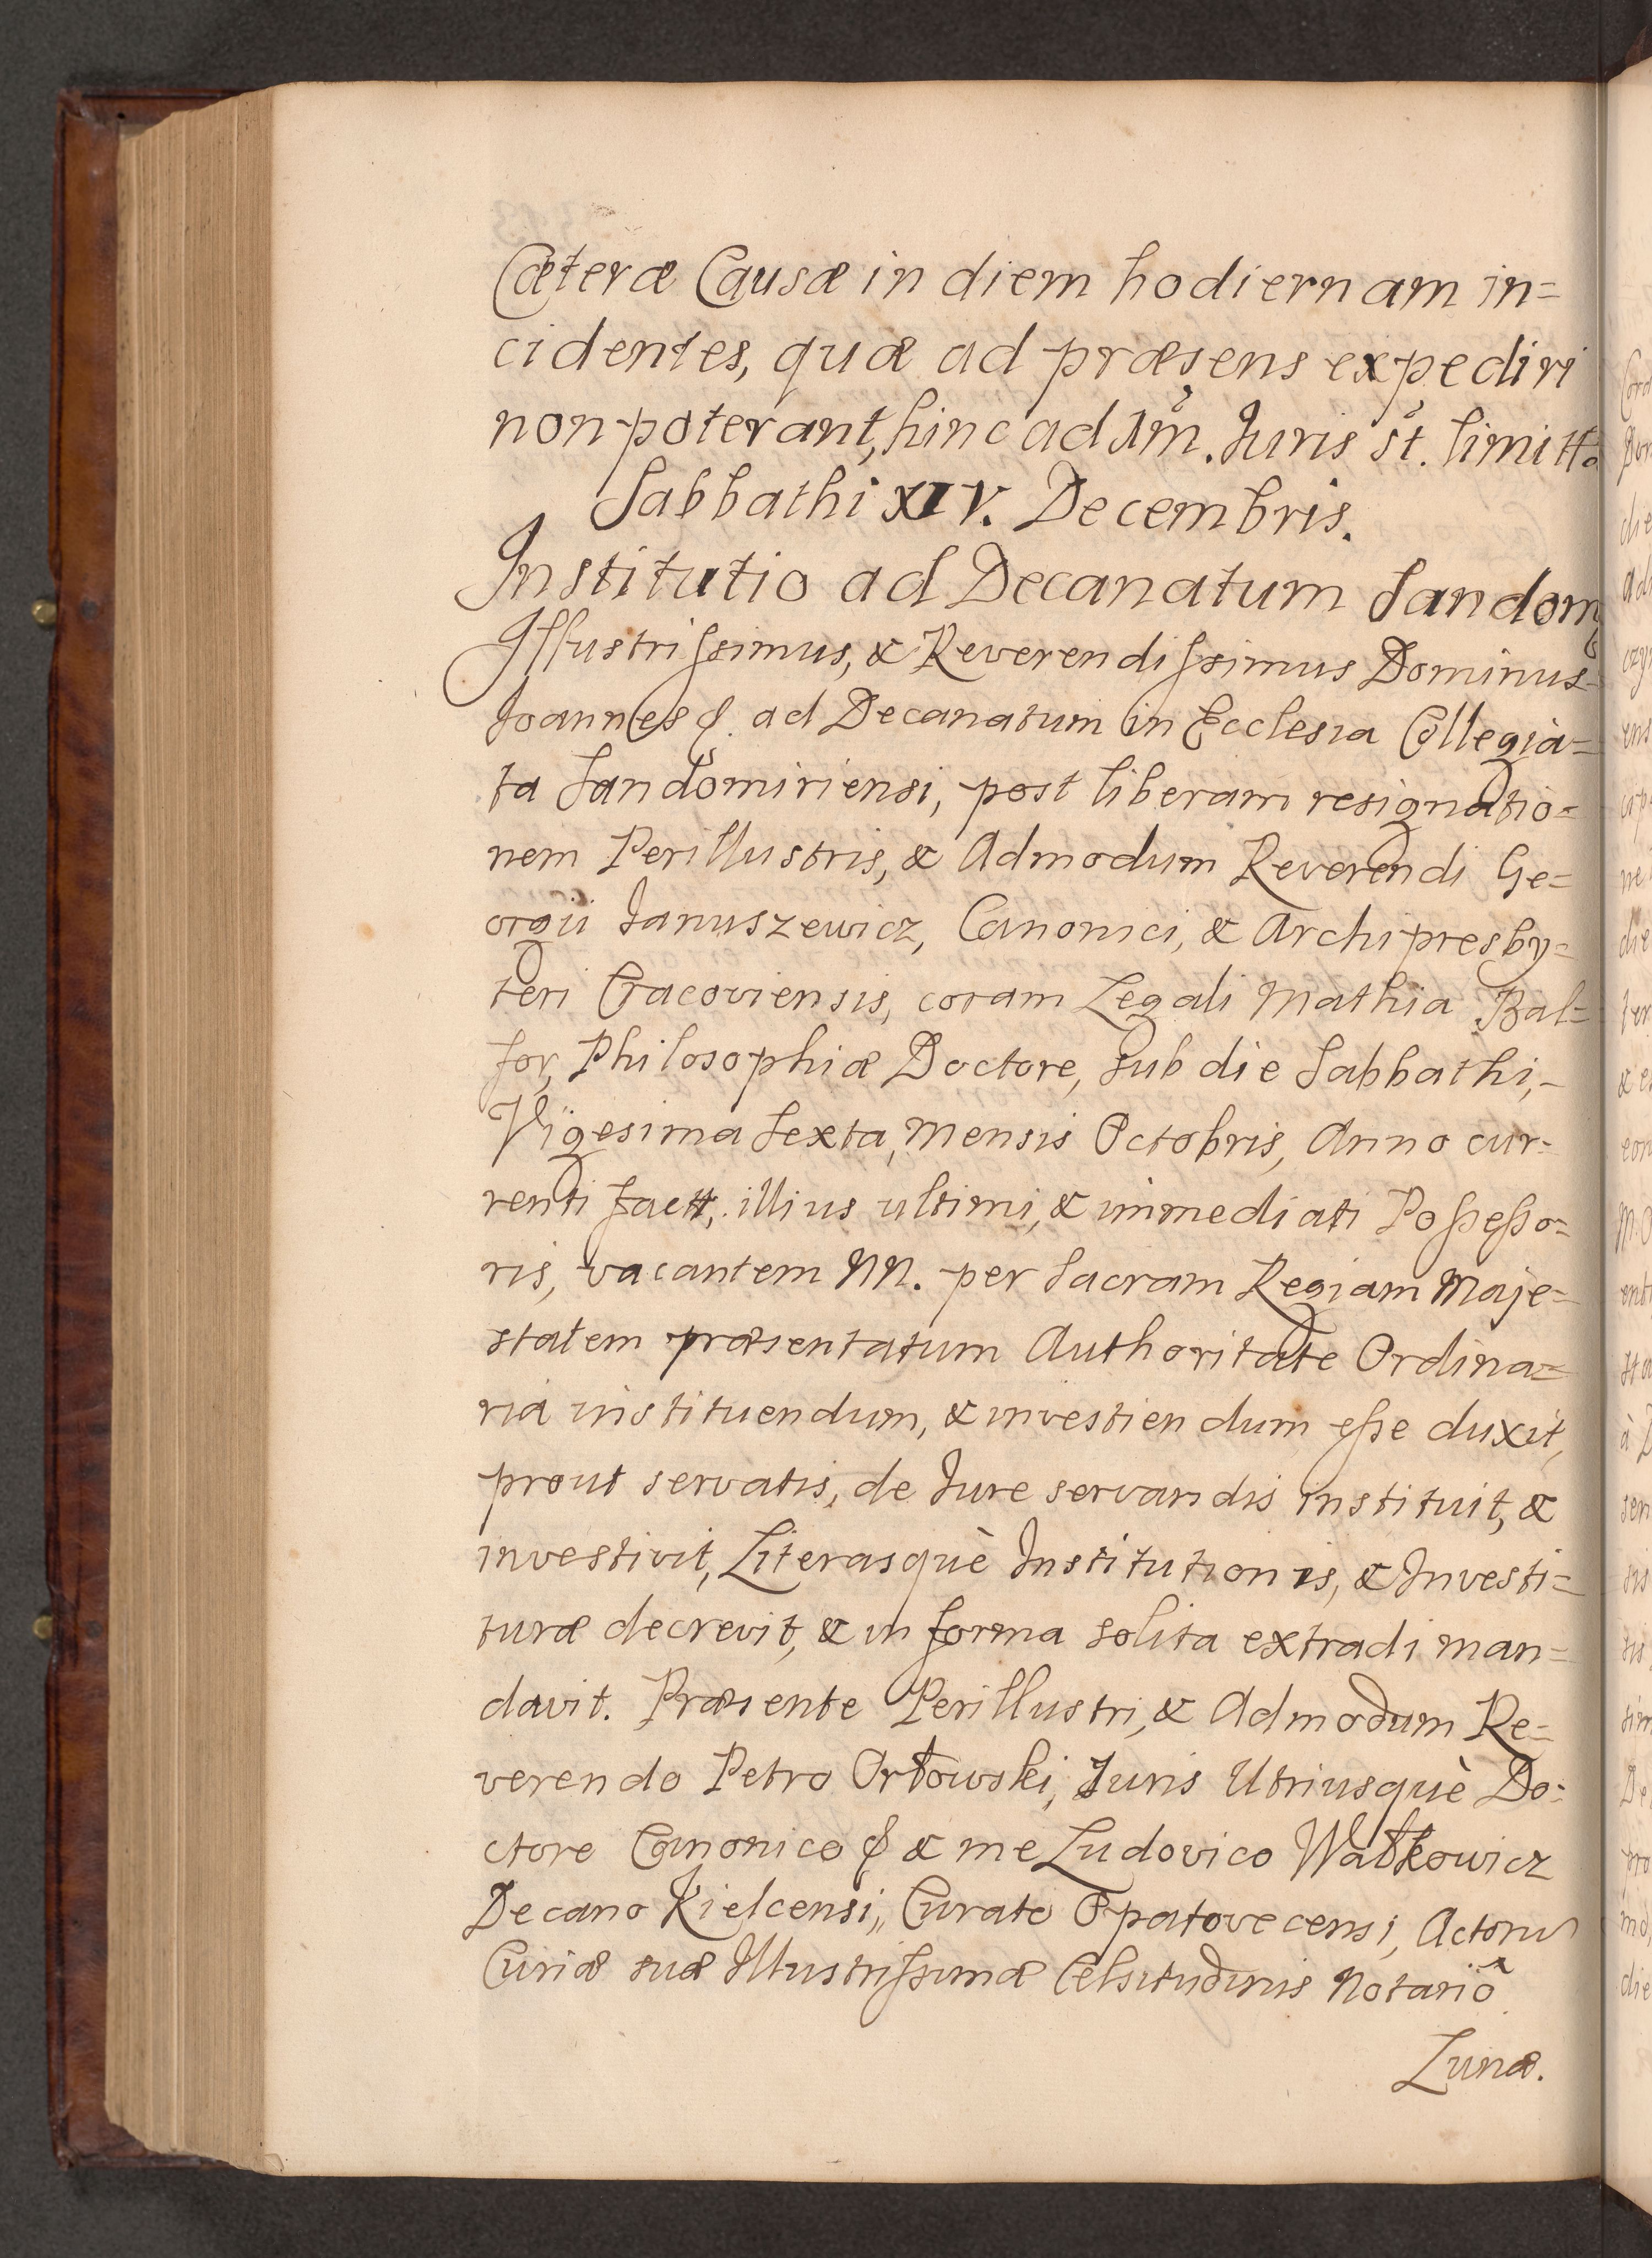 Cæteræ Causæ in diem hodiernam in=
cidentes, quæ ad præsens expediri
non poterant, hinc ad 1m̃. Juris st. limitt.
Sabbathi XIV. Decembris.
Institutio ad Decanatum Sandom
Illustrissimus, & Reverendissimus Dominus
Joannes ad Decanatum in Ecclesia Collegia=
ta Sandomiriensi, post liberam resignatio=
nem Perillustris, & Admodum Reverendi Ge=
orgii Januszewicz, Canonici, & Archipresby=
teri Cracoviensis, coram Legali Mathia Bal=
for, Philosophiæ Doctore, sub die Sabbathi,-
Vigesima Sexta, mensis Octobris, Anno cur=
renti factt, illius ultimi, & immediati Possesso=
ris, vacantem NN. per Sacram Regiam Maje=
statem præsentatum Authoritate Ordina=
ria instituendum, & investiendum esse duxit,
prout servatis, de Jure servandis instituit, &
investivit, Literasquè Institutionis, & Investi=
turæ decrevit, & in forma solita extradi man=
davit. Præsente Perillustri, & Admodum Re=
verendo Petro Orłowski, Juris Utriusquè Do=
ctore Canonico & me Ludovico Wałkowicz
Decano Kielcensi, Curato Opatovecensi, Actoru
Curiæ suæ Illustrissimæ Celsitudinis Notariô
Lunæ.